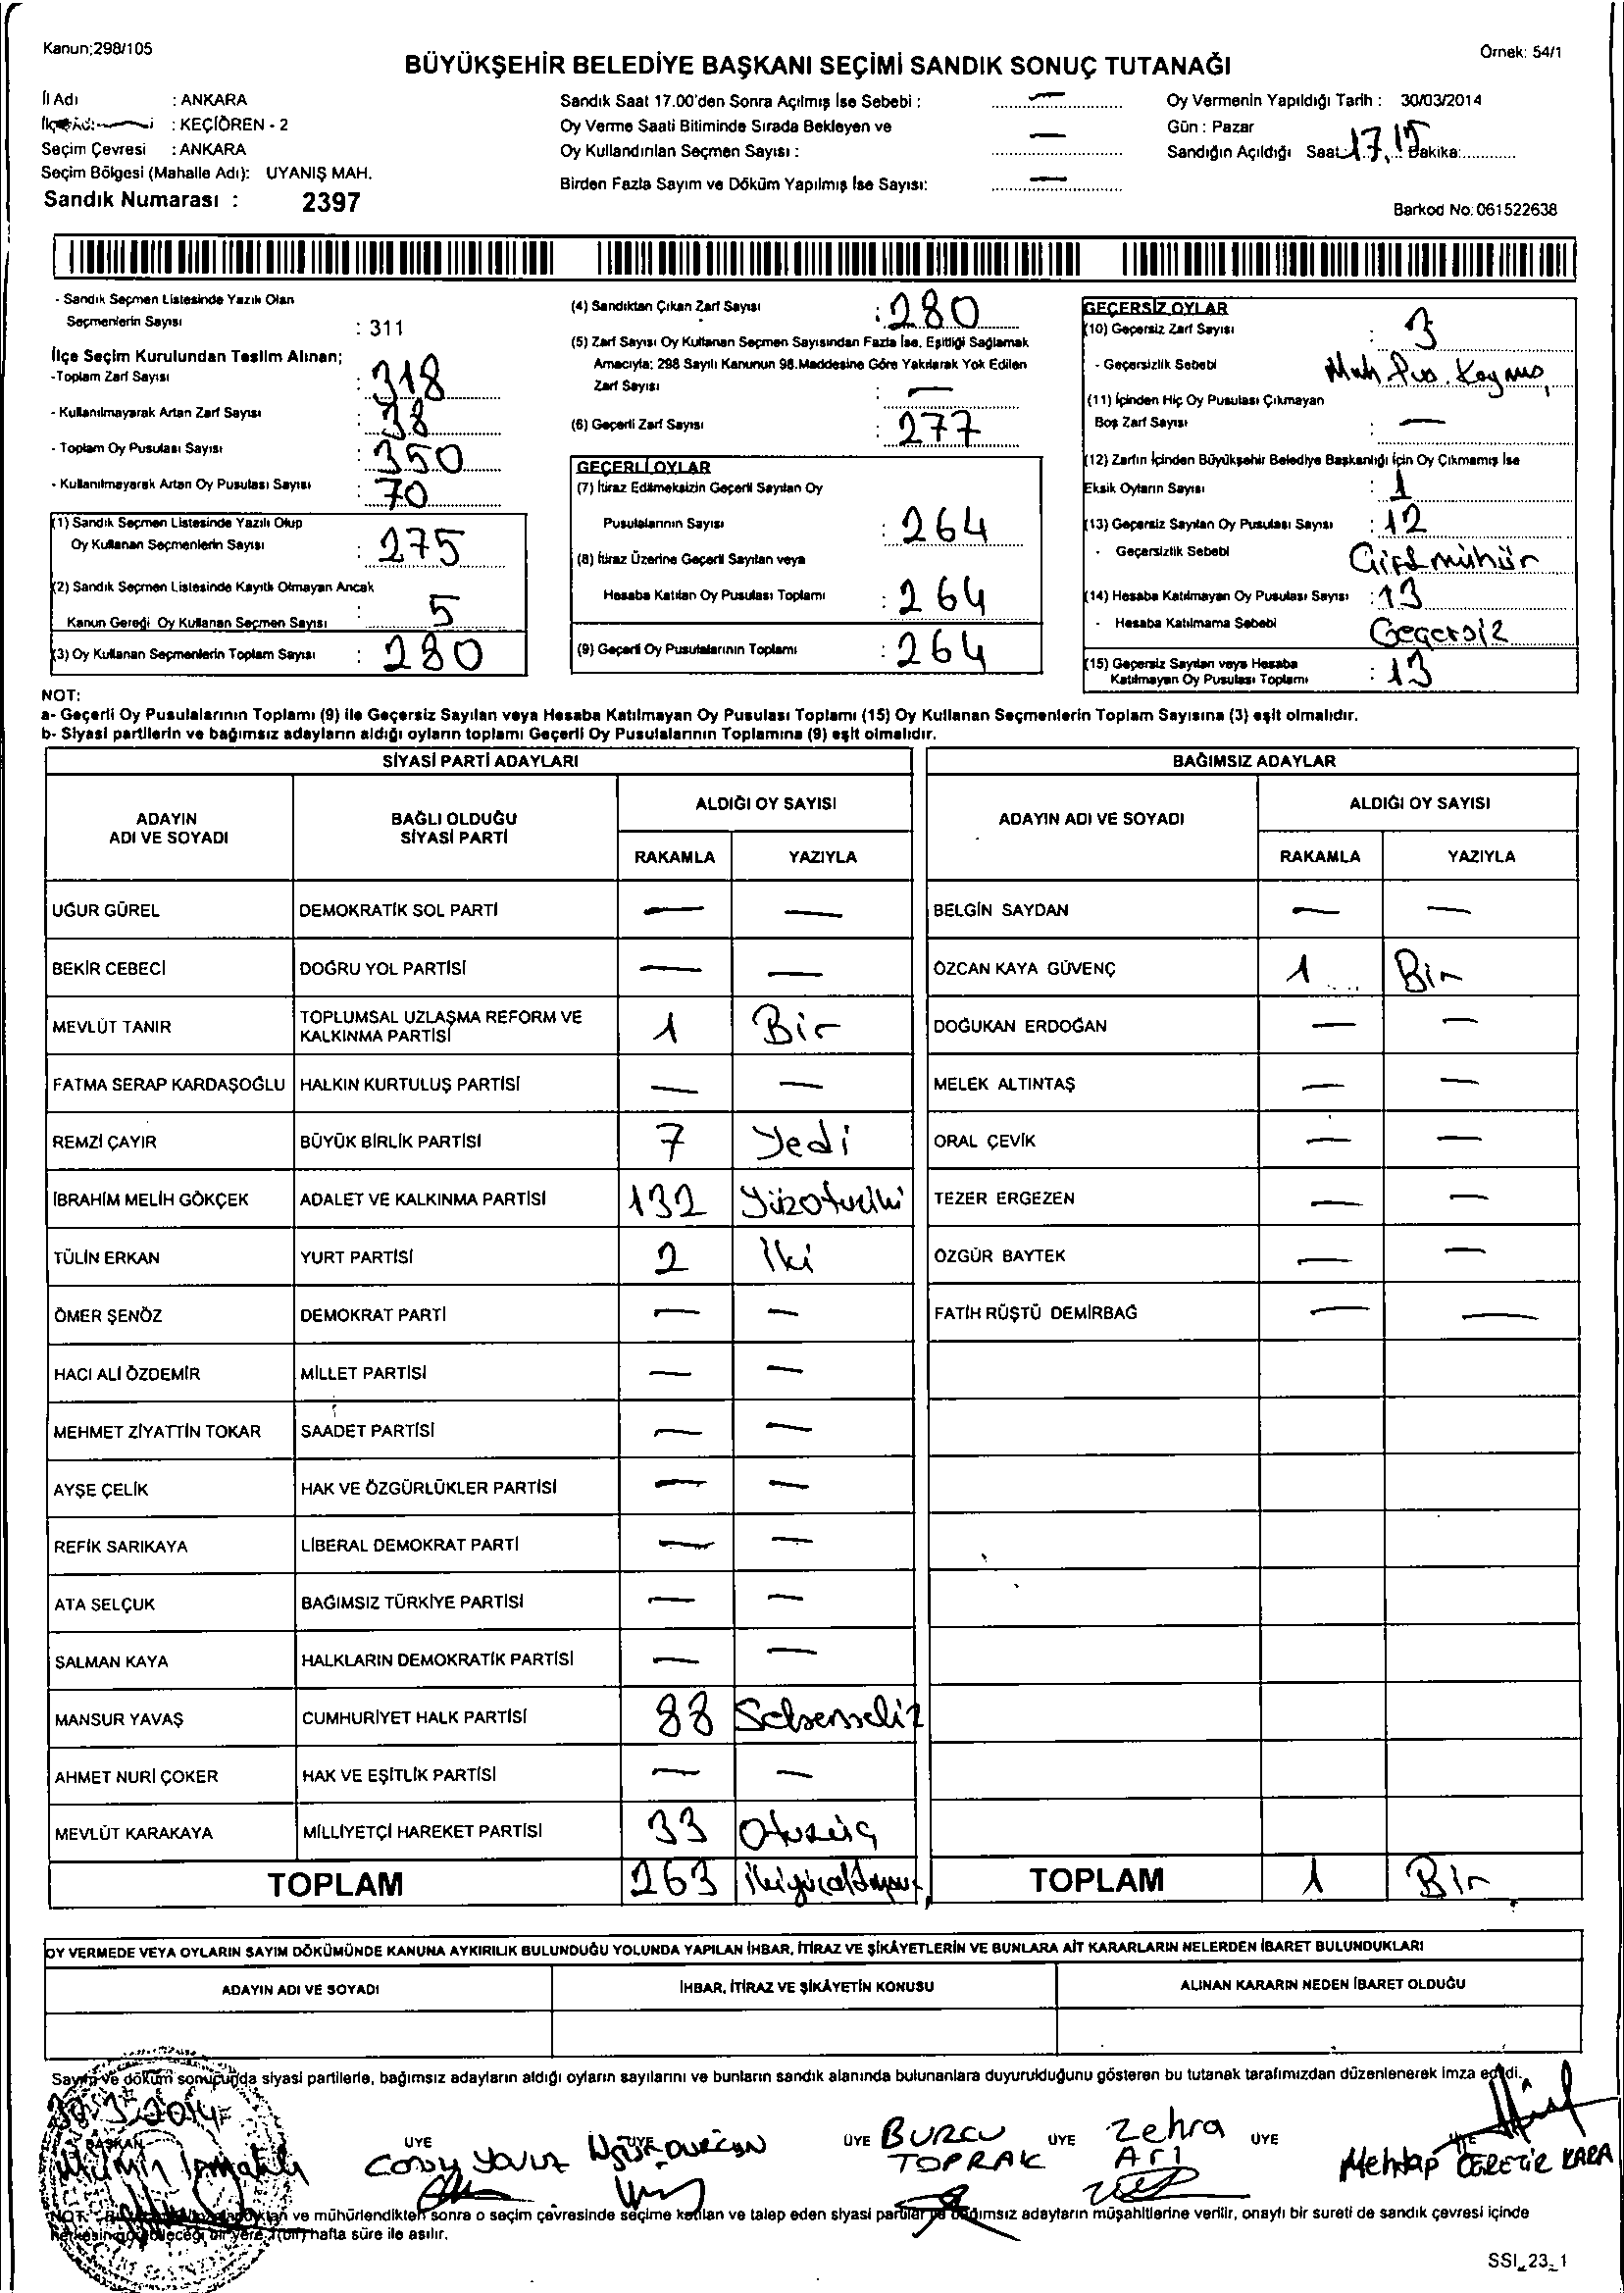 Kanun;298/105
Örnek: 54/1
BÜYÜKŞEHİR BELEDİYE BAŞKANI SEÇİMİ SANDIK SONUÇ TUTANAĞI
İl Adı : ANKARA
: KEÇİÖREN - 2
Seçim Çevresi : ANKARA
Seçim Bölgesi (Mahalle Adı): UYANIŞ MAH.
Sandık Numarası : 2397
Sandık Saat 17.00'den Sonra Açılmış İse Sebebi : —
Oy Verme Saati Bitiminde Sırada Bekleyen ve
Oy Kullandırılan Seçmen Sayısı : —
Birden Fazla Sayım ve Döküm Yapılmış İse Sayısı: —
Oy Vermenin Yapıldığı Tarih : 30/03/2014
Gün : Pazar
Sandığın Açıldığı Saat 17.15 Dakika:
Barkod No: 061522638
- Sandık Seçmen Listesinde Yazılı Olan
Seçmenlerin Sayısı : 311
İlçe Seçim Kurulundan Teslim Alınan;
-Toplam Zarf Sayısı : 318
- Kullanılmayarak Artan Zarf Sayısı : 38
- Toplam Oy Pusulası Sayısı : 350
- Kullanılmayarak Artan Oy Pusulası Sayısı : 70
(1) Sandık Seçmen Listesinde Yazılı Olup
Oy Kullanan Seçmenlerin Sayısı : 275
(2) Sandık Seçmen Listesinde Kayıtlı Olmayan Ancak
Kanun Gereği Oy Kullanan Seçmen Sayısı : 5
(3) Oy Kullanan Seçmenlerin Toplam Sayısı : 280
(4) Sandıktan Çıkan Zarf Sayısı : 280
(5) Zarf Sayısı Oy Kullanan Seçmen Sayısından Fazla İse, Eşitliği Sağlamak
Amacıyla: 298 Sayılı Kanunun 98.Maddesine Göre Yakılarak Yok Edilen
Zarf Sayısı : —
(6) Geçerli Zarf Sayısı : 277
GEÇERLİ OYLAR
(7) İtiraz Edilmeksizin Geçerli Sayılan Oy
Pusulalarının Sayısı : 264
(8) İtiraz Üzerine Geçerli Sayılan veya
Hesaba Katılan Oy Pusulası Toplamı : 264
(9) Geçerli Oy Pusulalarının Toplamı : 264
GEÇERSİZ OYLAR
(10) Geçersiz Zarf Sayısı : 3
- Geçersizlik Sebebi
(11) İçinden Hiç Oy Pusulası Çıkmayan
Boş Zarf Sayısı : —
(12) Zarfın İçinden Büyükşehir Belediye Başkanlığı İçin Oy Çıkmamış İse
Eksik Oyların Sayısı : 1
(13) Geçersiz Sayılan Oy Pusulası Sayısı : 12
- Geçersizlik Sebebi Çift mühür
(14) Hesaba Katılmayan Oy Pusulası Sayısı : 13
- Hesaba Katılmama Sebebi Geçersiz
(15) Geçersiz Sayılan veya Hesaba
Katılmayan Oy Pusulası Toplamı : 13
NOT:
a- Geçerli Oy Pusulalarının Toplamı (9) ile Geçersiz Sayılan veya Hesaba Katılmayan Oy Pusulası Toplamı (15) Oy Kullanan Seçmenlerin Toplam Sayısına (3) eşit olmalıdır.
b- Siyasi partilerin ve bağımsız adayların aldığı oyların toplamı Geçerli Oy Pusulalarının Toplamına (9) eşit olmalıdır.
SİYASİ PARTİ ADAYLARI
ADAYIN ADI VE SOYADI BAĞLI OLDUĞU SİYASİ PARTİ ALDIĞI OY SAYISI
RAKAMLA YAZIYLA
UĞUR GÜREL DEMOKRATİK SOL PARTİ — —
BEKİR CEBECİ DOĞRU YOL PARTİSİ — —
MEVLÜT TANIR TOPLUMSAL UZLAŞMA REFORM VE KALKINMA PARTİSİ 1 Bir
FATMA SERAP KARDAŞOĞLU HALKIN KURTULUŞ PARTİSİ — —
REMZİ ÇAYIR BÜYÜK BİRLİK PARTİSİ 7 Yedi
İBRAHİM MELİH GÖKÇEK ADALET VE KALKINMA PARTİSİ 132 Yüzotuziki
TÜLİN ERKAN YURT PARTİSİ 2 İki
ÖMER ŞENÖZ DEMOKRAT PARTİ — —
HACI ALİ ÖZDEMİR MİLLET PARTİSİ — —
MEHMET ZİYATTİN TOKAR SAADET PARTİSİ — —
AYŞE ÇELİK HAK VE ÖZGÜRLÜKLER PARTİSİ — —
REFİK SARIKAYA LİBERAL DEMOKRAT PARTİ — —
ATA SELÇUK BAĞIMSIZ TÜRKİYE PARTİSİ — —
SALMAN KAYA HALKLARIN DEMOKRATİK PARTİSİ — —
MANSUR YAVAŞ CUMHURİYET HALK PARTİSİ 88 Seksensekiz
AHMET NURİ ÇOKER HAK VE EŞİTLİK PARTİSİ — —
MEVLÜT KARAKAYA MİLLİYETÇİ HAREKET PARTİSİ 33 Otuzüç
TOPLAM 263
BAĞIMSIZ ADAYLAR
ADAYIN ADI VE SOYADI ALDIĞI OY SAYISI
RAKAMLA YAZIYLA
BELGİN SAYDAN — —
ÖZCAN KAYA GÜVENÇ 1 Bir
DOĞUKAN ERDOĞAN — —
MELEK ALTINTAŞ — —
ORAL ÇEVİK — —
TEZER ERGEZEN — —
ÖZGÜR BAYTEK — —
FATİH RÜŞTÜ DEMİRBAĞ — —
TOPLAM 1 Bir
OY VERMEDE VEYA OYLARIN SAYIM DÖKÜMÜNDE KANUNA AYKIRILIK BULUNDUĞU YOLUNDA YAPILAN İHBAR, İTİRAZ VE ŞİKÂYETLERİN VE BUNLARA AİT KARARLARIN NELERDEN İBARET BULUNDUKLARI
ADAYIN ADI VE SOYADI İHBAR, İTİRAZ VE ŞİKÂYETİN KONUSU ALINAN KARARIN NEDEN İBARET OLDUĞU
Sayım ve döküm sonucunda siyasi partilerle, bağımsız adayların aldığı oyların sayılarını ve bunların sandık alanında bulunanlara duyurulduğunu gösteren bu tutanak tarafımızdan düzenlenerek imza edildi.
30.3.2014
BAŞKAN ÜYE ÜYE ÜYE BURCU ÜYE Zehra ÜYE
TOPRAK Arı
Mehtap
KARA
NOT: ve mühürlendikten sonra o seçim çevresinde seçime katılan ve talep eden siyasi partiler ve bağımsız adayların müşahitlerine verilir, onaylı bir sureti de sandık çevresi içinde
herkesin görebileceği bir yere 1 (bir) hafta süre ile asılır.
SSI_23_1